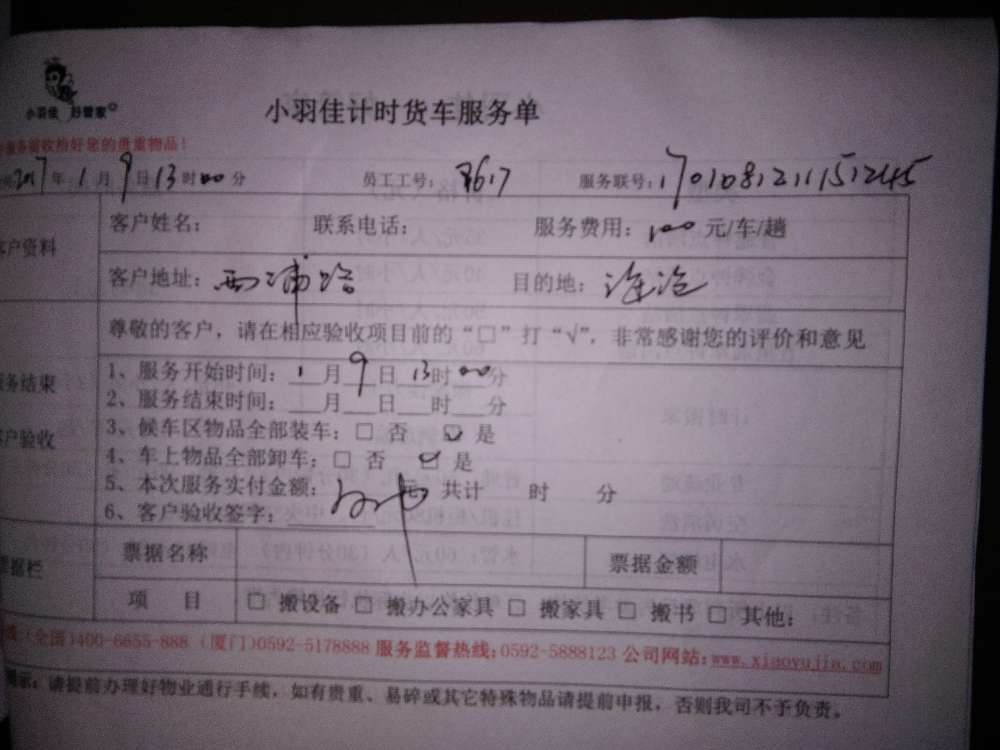 小羽佳 好管家
小羽佳计时货车服务单
服务前请收检好您的贵重物品!
2017年1月9日13时00分 员工工号: 3617 服务联号: 1701081211151245
客户资料
客户姓名: 联系电话: 服务费用: 100元/车/趟
客户地址: 西浦路 目的地:
尊敬的客户，请在相应验收项目前的“□”打“√”，非常感谢您的评价和意见
服务结束
客户验收
1、服务开始时间: 1月9日13时00分
2、服务结束时间: 月 日 时 分
3、候车区物品全部装车: □ 否 ☑ 是
4、车上物品全部卸车: □ 否 ☑ 是
5、本次服务实付金额: 元 共计 时 分
6、客户验收签字:
票据栏
票据名称 票据金额
项 目 □ 搬设备 □ 搬办公家具 □ 搬家具 □ 搬书 □ 其他:
(全国)400-6655-888 (厦门)0592-5178888 服务监督热线:0592-5888123 公司网站:www.xiaoyujia.com
提示: 请提前办理好物业通行手续，如有贵重、易碎或其它特殊物品请提前申报，否则我司不予负责。